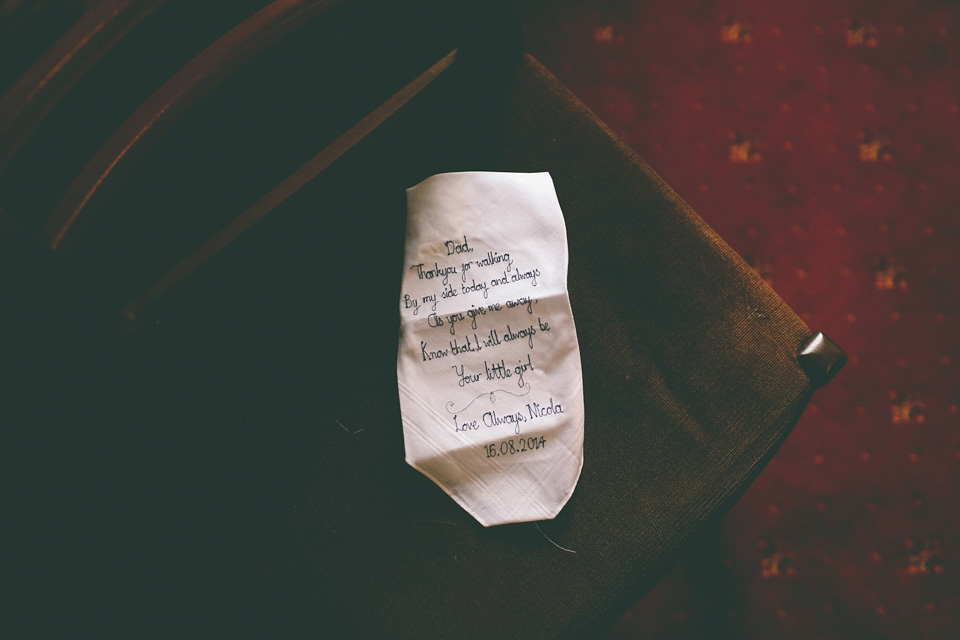 Dad,
Thankyou for walking,
By my side today and always
As you give me away,
Know that I will always be
Your little girl
Love Always, Nicola
15.08.2014